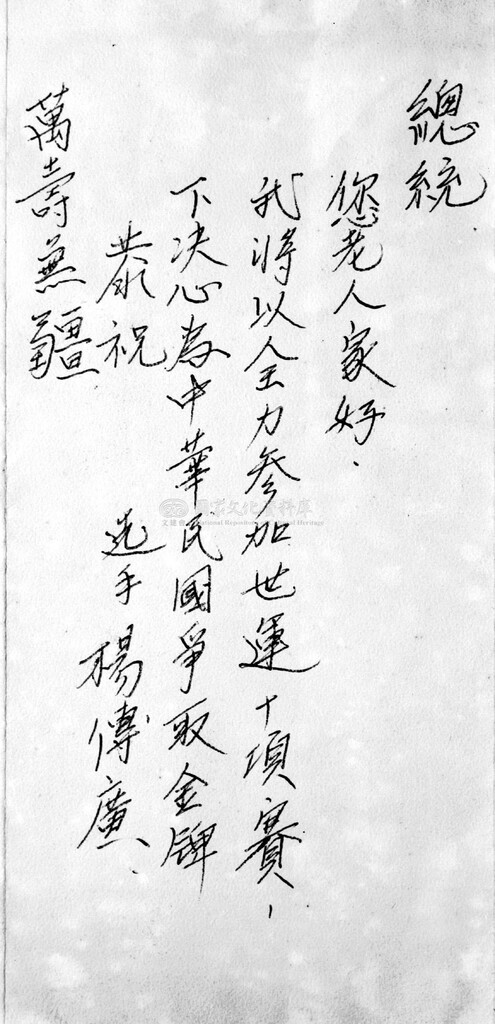 總統
您老人家好．
我將以全力參加世運十項賽，
下決心為中華民國爭取金牌
恭祝
萬壽無疆
选手 楊傳廣、
國家文化資料庫
National Repository of Cultural Heritage